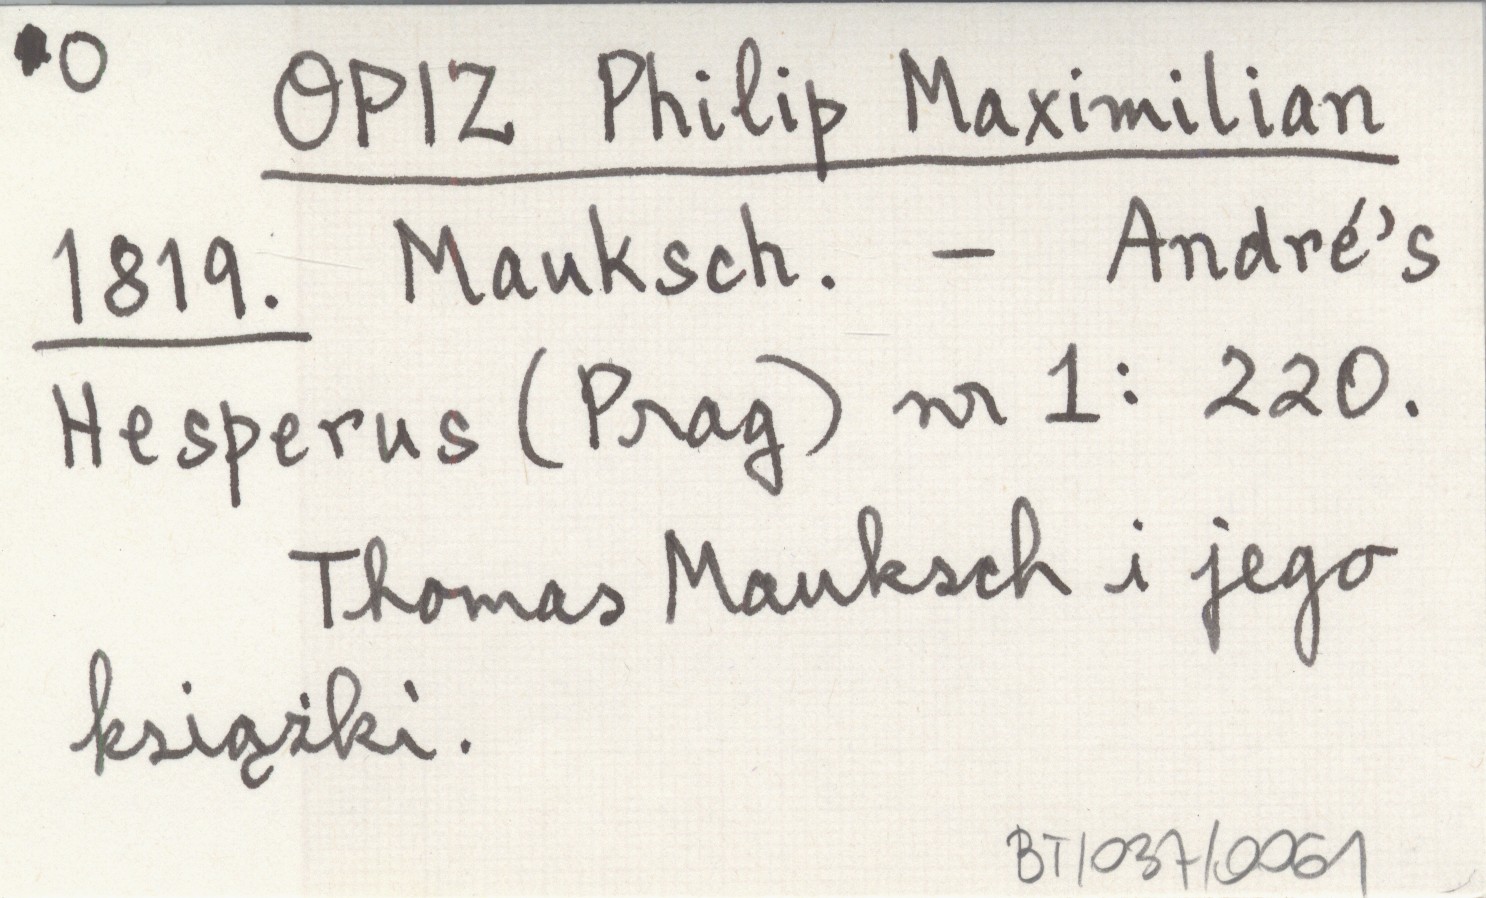 O
OPIZ Philip Maximilian
1819. Mauksch. – André's
Hesperus (Prag) nr 1: 220.
Thomas Mauksch i jego
książki.
BT/037/0061